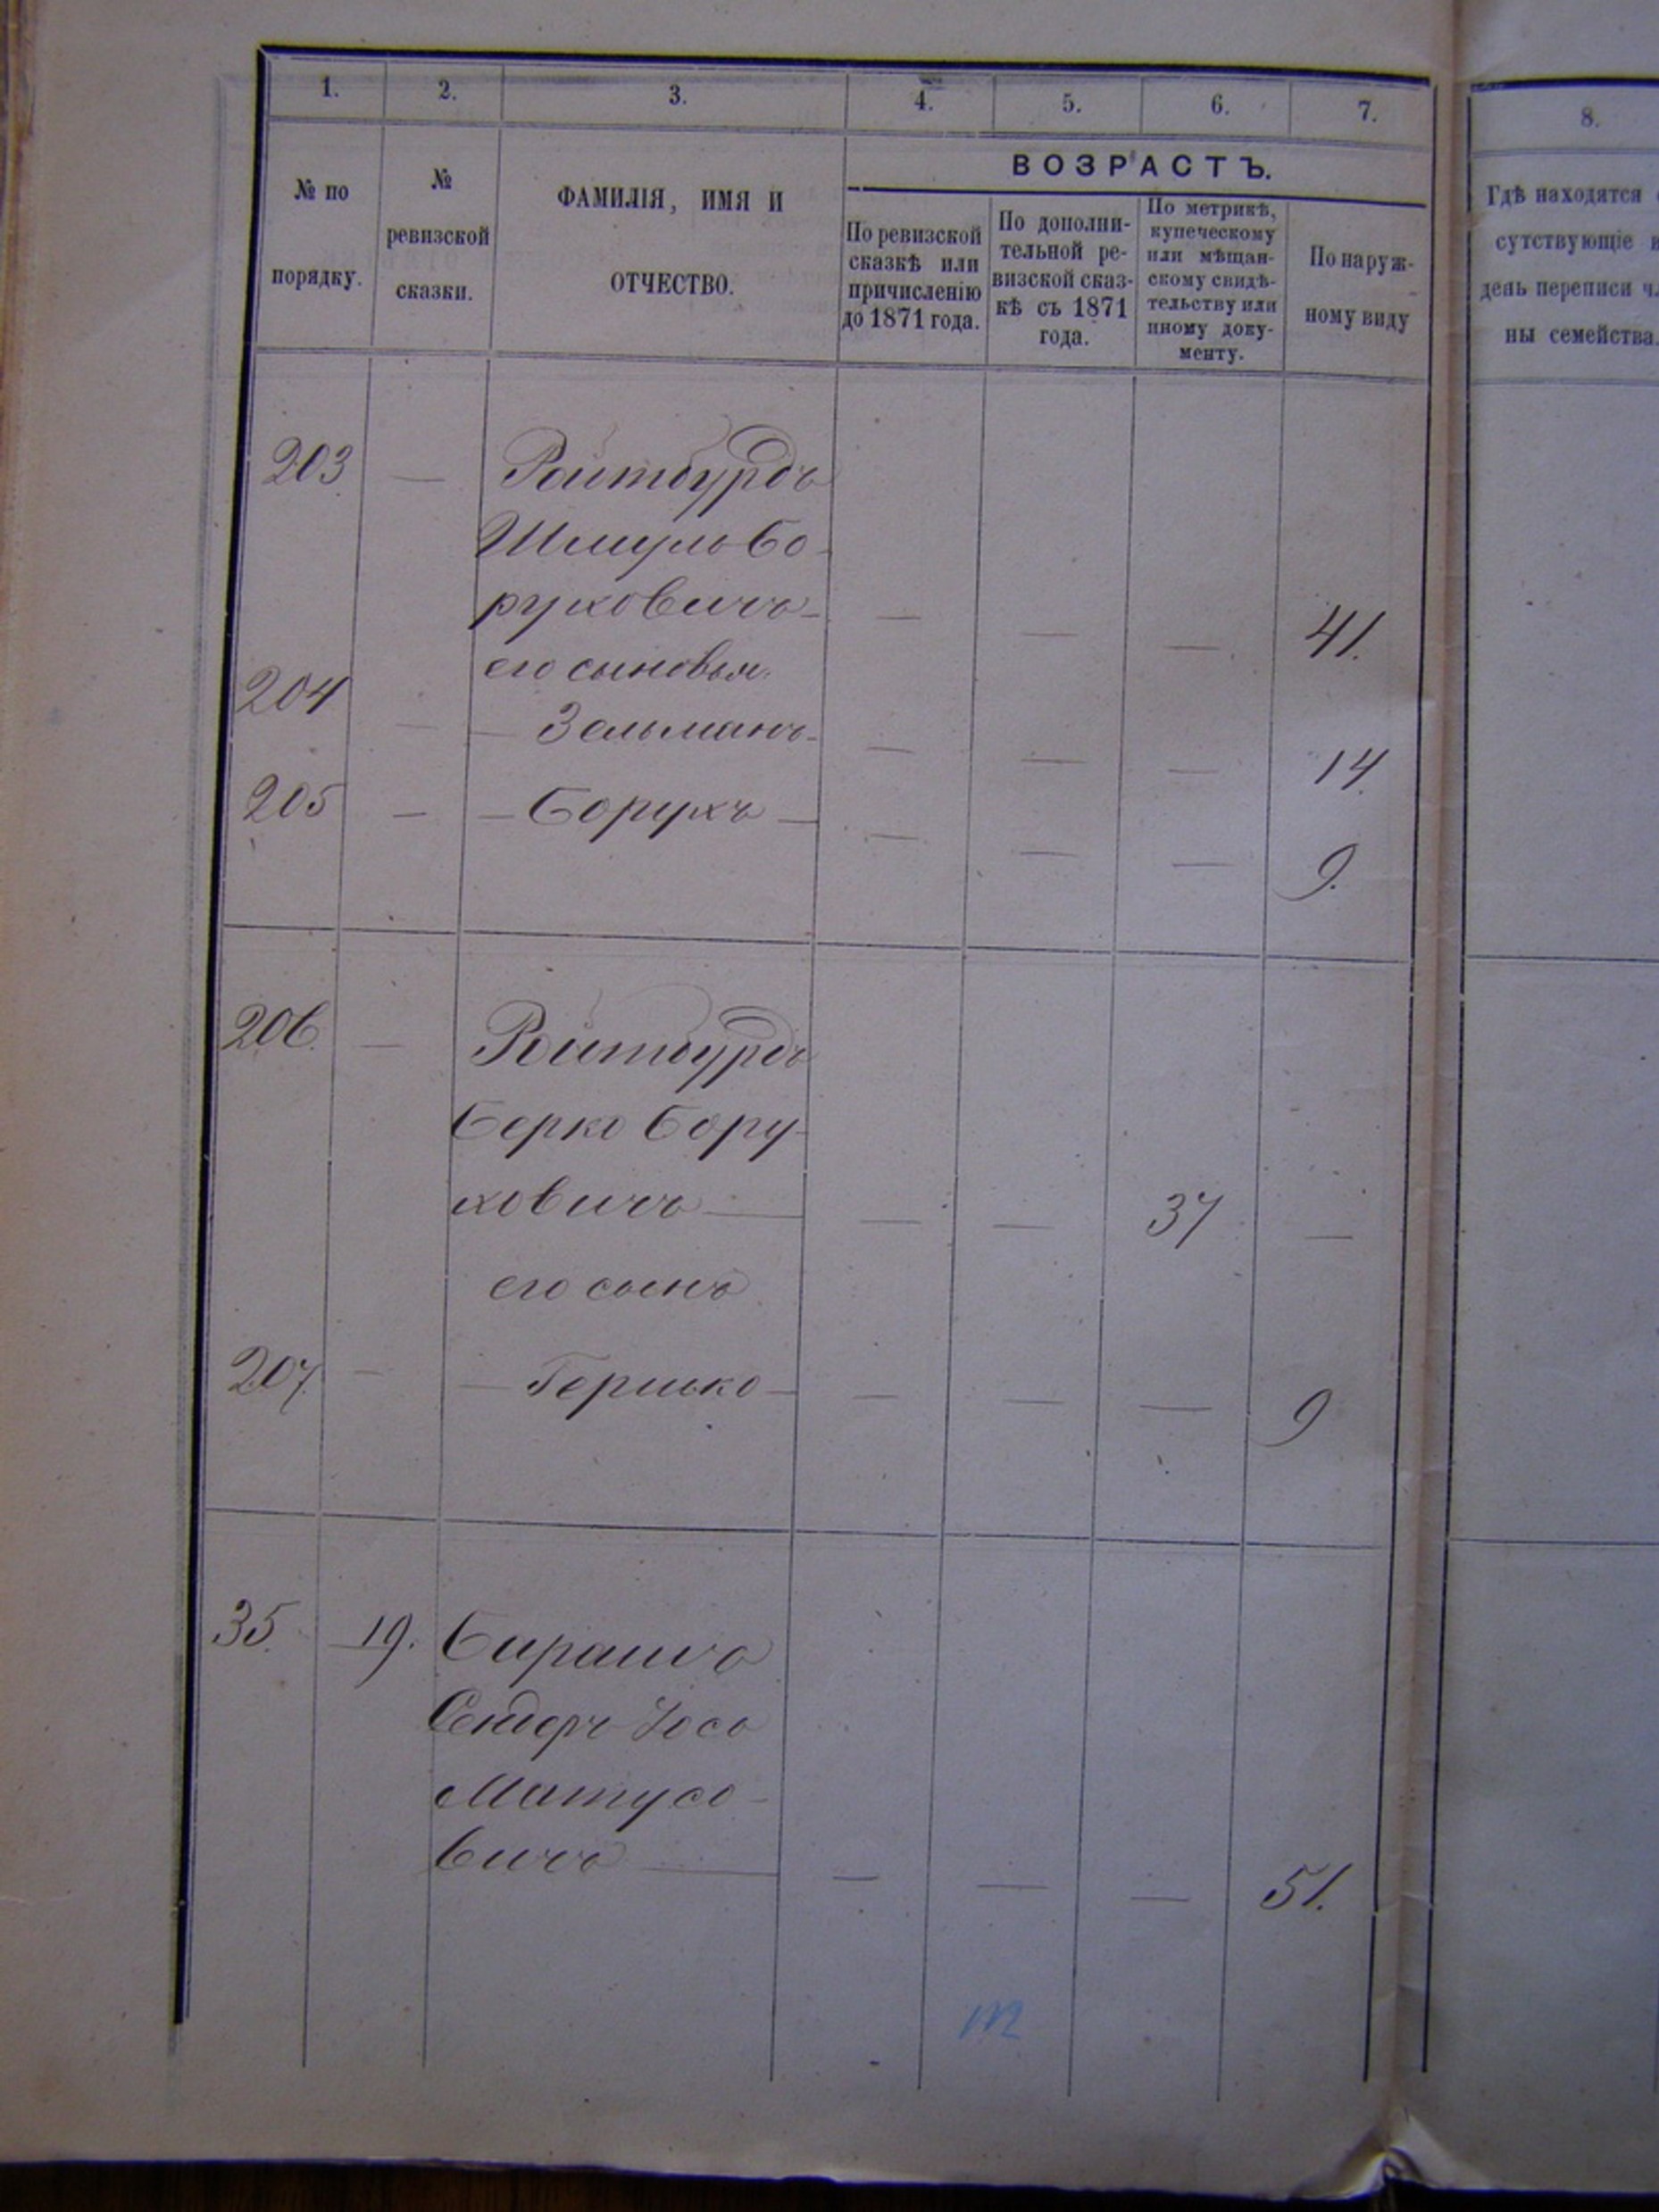 1.
2.
3.
4.
5.
6.
7.
8.
№ по
порядку.
№
ревизской
сказки.
ФАМИЛІЯ, ИМЯ И
ОТЧЕСТВО.
ВОЗРАСТЪ.
По ревизской
сказкѣ или
причисленію
до 1871 года.
По дополни-
тельной ре-
визской сказ-
кѣ съ 1871
года.
По метрикѣ,
купеческому
или мѣщан-
скому свидѣ-
тельству или
иному доку-
менту.
По наруж-
ному виду
Гдѣ находятся
сутствующіе
день переписи
ны семейства.
203 — Ройтбурдъ
Шмуль Бо-
руховичъ — — — — 41.
его сыновья:
204 — — Зельманъ — — — — 14.
205 — — Борухъ — — — — 9.
206. — Ройтбурдъ
Берко Бору-
ховичъ — — — 37 —
его сынъ
207. — — Гершко — — — — 9
35. 19. Барашъ
Сендеръ Іось
Матусо-
вичъ — — — — 51.